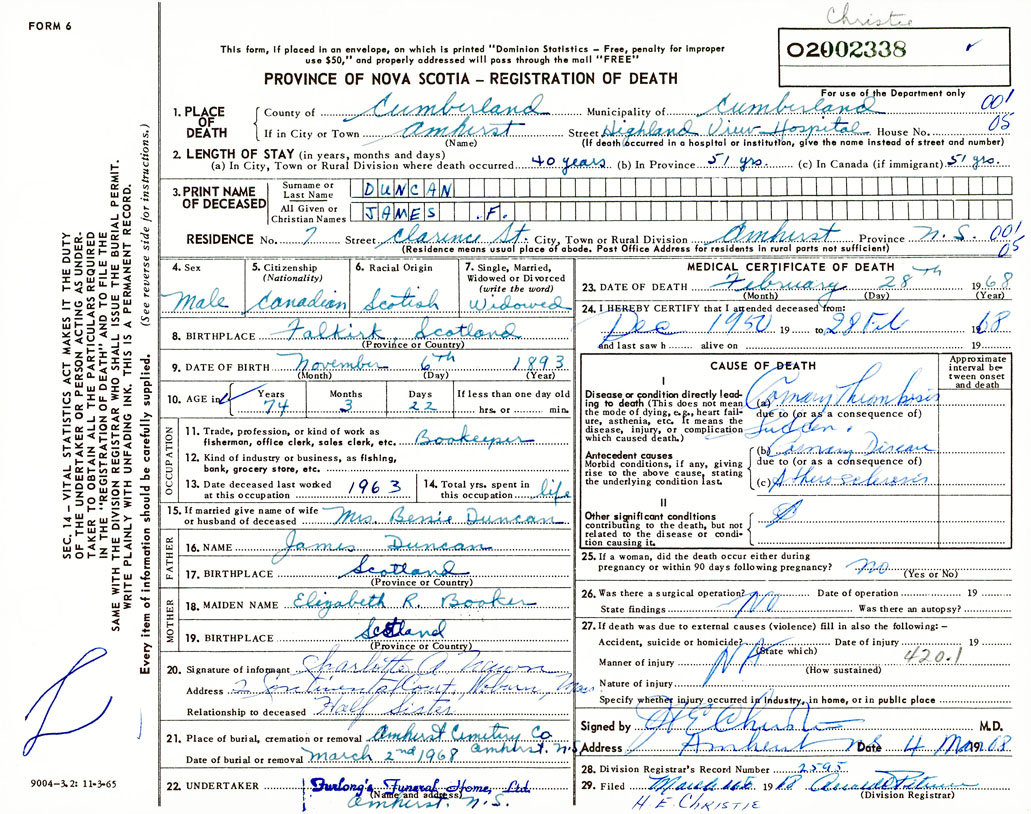 FORM 6
Christie
02002338
This form, if placed in an envelope, on which is printed "Dominion Statistics – Free, penalty for improper
use $50," and properly addressed will pass through the mail "FREE"
PROVINCE OF NOVA SCOTIA – REGISTRATION OF DEATH
For use of the Department only
001
05
1. PLACE OF DEATH
County of Cumberland Municipality of Cumberland
If in City or Town Amherst Street Highland View Hospital House No.
(Name) (If death occurred in a hospital or institution, give the name instead of street and number)
2. LENGTH OF STAY (in years, months and days)
(a) In City, Town or Rural Division where death occurred 40 years (b) In Province 51 yrs. (c) In Canada (if immigrant) 51 yrs.
3. PRINT NAME OF DECEASED
Surname or Last Name DUNCAN
All Given or Christian Names JAMES .F.
RESIDENCE No. 7 Street Clarence St. City, Town or Rural Division Amherst Province N.S. 001
05
(Residence means usual place of abode. Post Office Address for residents in rural parts not sufficient)
4. Sex
Male
5. Citizenship
(Nationality)
Canadian
6. Racial Origin
Scotish
7. Single, Married,
Widowed or Divorced
(write the word)
Widowed
8. BIRTHPLACE Falkirk, Scotland
(Province or Country)
9. DATE OF BIRTH November 6th 1893
(Month) (Day) (Year)
10. AGE in Years Months Days If less than one day old
74 3 22 hrs. or min.
OCCUPATION
11. Trade, profession, or kind of work as
fisherman, office clerk, sales clerk, etc. Bookeeper
12. Kind of industry or business, as fishing,
bank, grocery store, etc.
13. Date deceased last worked
at this occupation 1963
14. Total yrs. spent in
this occupation life
15. If married give name of wife
or husband of deceased Mrs. Bessie Duncan
FATHER
16. NAME James Duncan
17. BIRTHPLACE Scotland
(Province or Country)
MOTHER
18. MAIDEN NAME Elizabeth R. Booker
19. BIRTHPLACE Scotland
(Province or Country)
20. Signature of informant Charlotte A
Address Court, Woburn, Mass
Relationship to deceased Half Sister
21. Place of burial, cremation or removal Amherst Cemetery Co
Amherst, N.S.
Date of burial or removal March 2nd 1968
22. UNDERTAKER Furlong's Funeral Home, Ltd.
(Name and address)
Amherst, N.S.
MEDICAL CERTIFICATE OF DEATH
23. DATE OF DEATH February 28th 1968
(Month) (Day) (Year)
24. I HEREBY CERTIFY that I attended deceased from:
Dec 1950 19 to 28 Feb 1968
and last saw h alive on 19
CAUSE OF DEATH
Approximate interval between onset and death
I
Disease or condition directly leading to death (This does not mean the mode of dying, e.g., heart failure, asthenia, etc. It means the disease, injury, or complication which caused death.)
(a) Coronary Thrombosis
due to (or as a consequence of)
Sudden.
Antecedent causes
Morbid conditions, if any, giving rise to the above cause, stating the underlying condition last.
(b) Coronary Disease
due to (or as a consequence of)
(c) Atherosclerosis
II
Other significant conditions
contributing to the death, but not related to the disease or condition causing it.
25. If a woman, did the death occur either during
pregnancy or within 90 days following pregnancy? no
(Yes or No)
26. Was there a surgical operation? NO Date of operation 19
State findings Was there an autopsy?
27. If death was due to external causes (violence) fill in also the following: –
Accident, suicide or homicide? NA Date of injury 19
(State which)
420.1
Manner of injury
(How sustained)
Nature of injury
Specify whether injury occurred in industry, in home, or in public place
Signed by H E Christie M.D.
Address Amherst NS Date 4 Mar 1968
28. Division Registrar's Record Number 2595
29. Filed March 19 68
(Division Registrar)
H.E. CHRISTIE
SEC. 14 – VITAL STATISTICS ACT MAKES IT THE DUTY
OF THE UNDERTAKER OR PERSON ACTING AS UNDER-
TAKER TO OBTAIN ALL THE PARTICULARS REQUIRED
IN THE "REGISTRATION OF DEATH" AND TO FILE THE
SAME WITH THE DIVISION REGISTRAR WHO SHALL ISSUE THE BURIAL PERMIT.
WRITE PLAINLY WITH UNFADING INK. THIS IS A PERMANENT RECORD.
Every item of information should be carefully supplied. (See reverse side for instructions.)
9004–3.2: 11-3-65